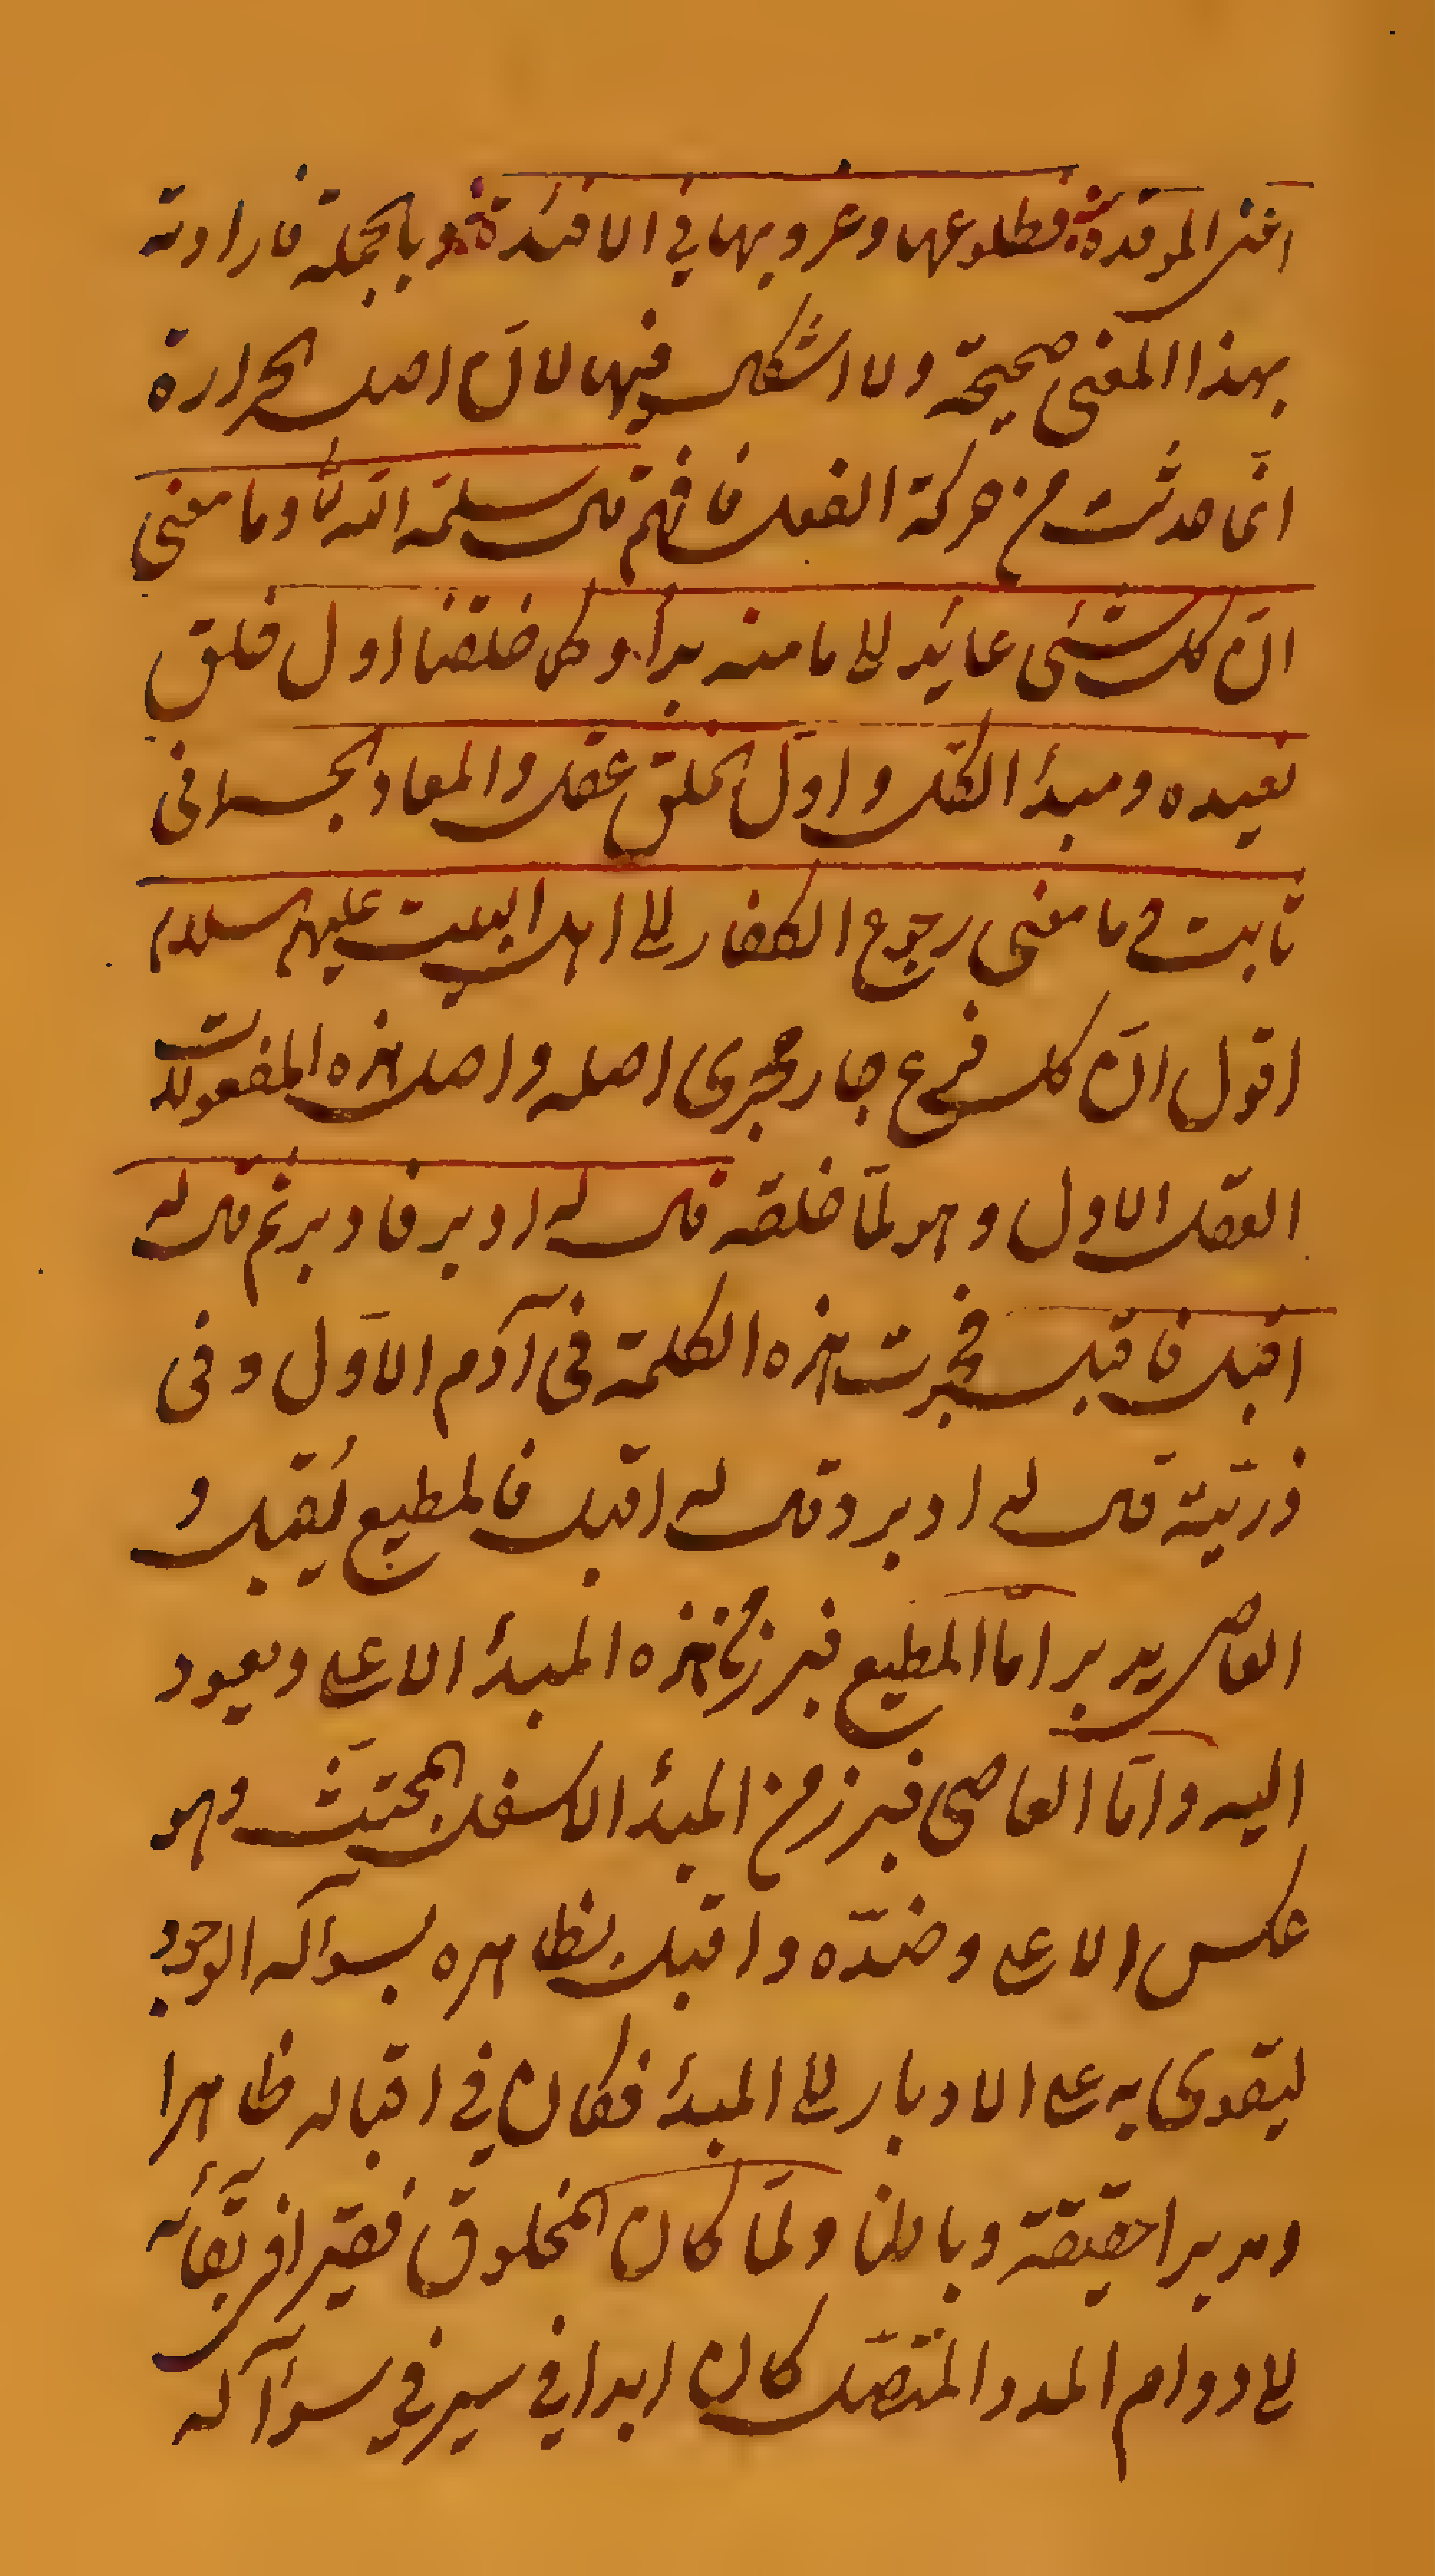 اعنی الموقدة فطلوعها وغروبها فی الافئدة وبالجملة فارادته
بهذا المعنی صحیحة ولا اشکال فیها لان اصل الحرارة
انما حدثت من حرکة الفعل فافهم قال سلمه الله تع وما معنی
ان کل شئ عائد الی ما منه بدأ وکما خلقنا اول خلق
نعیده ومبدأ الکل واول الخلق عقل والمعاد الجسمانی
ثابت وما معنی رجوع الکفار الی اهل البیت علیهم السلام
اقول ان کل فرع جار مجری اصله واصل هذه المفعولات
العقل الاول وهو لما خلقه قال له ادبر فادبر ثم قال له
اقبل فاقبل فجرت هذه الکلمة فی آدم الاول وفی
ذریته قال له ادبر وقال له اقبل فالمطیع یُقبل و
العاصی یدبر اما المطیع فبرز من هذه المبدأ الاعلی ویعود
الیه واما العاصی فبرز من المبدأ الاسفل المجتث وهو
عکس الاعلی وضده واقبل بظاهره بسوآله الوجود
لیقوی به علی الادبار الی المبدأ فکان فی اقباله ظاهرا
ومدبرا حقیقة وباطنا ولما کان المخلوق فقیرا فی بقائه
الی دوام المدد المتصل کان ابدا فی سیر فی سوآله